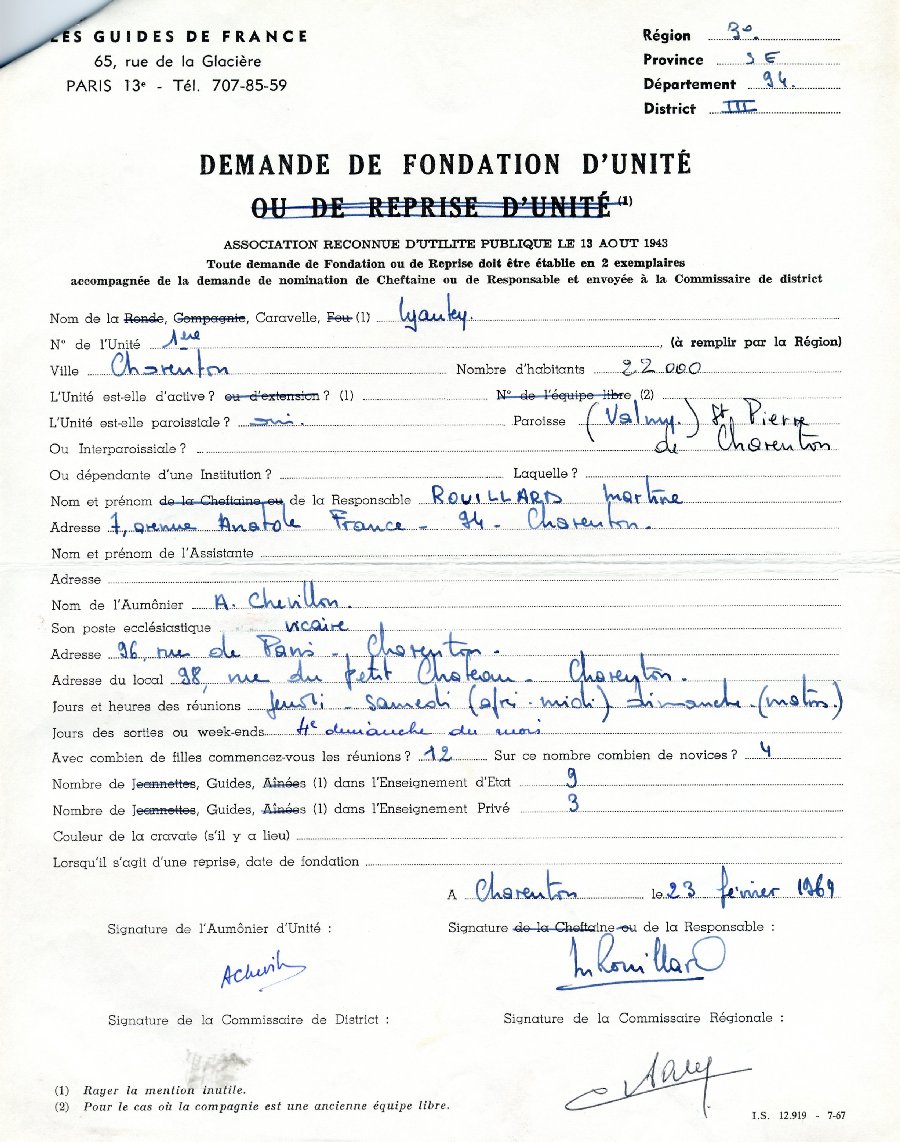 LES GUIDES DE FRANCE
65, rue de la Glacière
PARIS 13e - Tél. 707-85-59
Région 30.
Province SE
Département 94.
District III
DEMANDE DE FONDATION D'UNITÉ
OU DE REPRISE D'UNITÉ (1)
ASSOCIATION RECONNUE D'UTILITE PUBLIQUE LE 13 AOUT 1943
Toute demande de Fondation ou de Reprise doit être établie en 2 exemplaires
accompagnée de la demande de nomination de Cheftaine ou de Responsable et envoyée à la Commissaire de district
Nom de la Ronde, Compagnie, Caravelle, Feu (1) Lyautey.
N° de l'Unité 1ère (à remplir par la Région)
Ville Charenton Nombre d'habitants 22 000
L'Unité est-elle d'active ? ou d'extension ? (1) N° de l'équipe libre (2)
L'Unité est-elle paroissiale ? oui. Paroisse (Valmy.) St Pierre
Ou Interparoissiale ? de Charenton
Ou dépendante d'une Institution ? Laquelle ?
Nom et prénom de la Cheftaine ou de la Responsable ROUILLARD Martine
Adresse 7, avenue Anatole France - 94 - Charenton.
Nom et prénom de l'Assistante
Adresse
Nom de l'Aumônier A. Chevillon.
Son poste ecclésiastique vicaire
Adresse 96, rue de Paris - Charenton.
Adresse du local 98, rue du petit Chateau - Charenton.
Jours et heures des réunions Jeudi - Samedi (après-midi) Dimanche (matin.)
Jours des sorties ou week-ends 4e dimanche du mois
Avec combien de filles commencez-vous les réunions ? 12 Sur ce nombre combien de novices ? 4
Nombre de Jeannettes, Guides, Aînées (1) dans l'Enseignement d'Etat 9
Nombre de Jeannettes, Guides, Aînées (1) dans l'Enseignement Privé 3
Couleur de la cravate (s'il y a lieu)
Lorsqu'il s'agit d'une reprise, date de fondation
A Charenton le 23 février 1969
Signature de l'Aumônier d'Unité : Signature de la Cheftaine ou de la Responsable :
MRouillard
Signature de la Commissaire de District : Signature de la Commissaire Régionale :
(1) Rayer la mention inutile.
(2) Pour le cas où la compagnie est une ancienne équipe libre.
I.S. 12.919 - 7-67